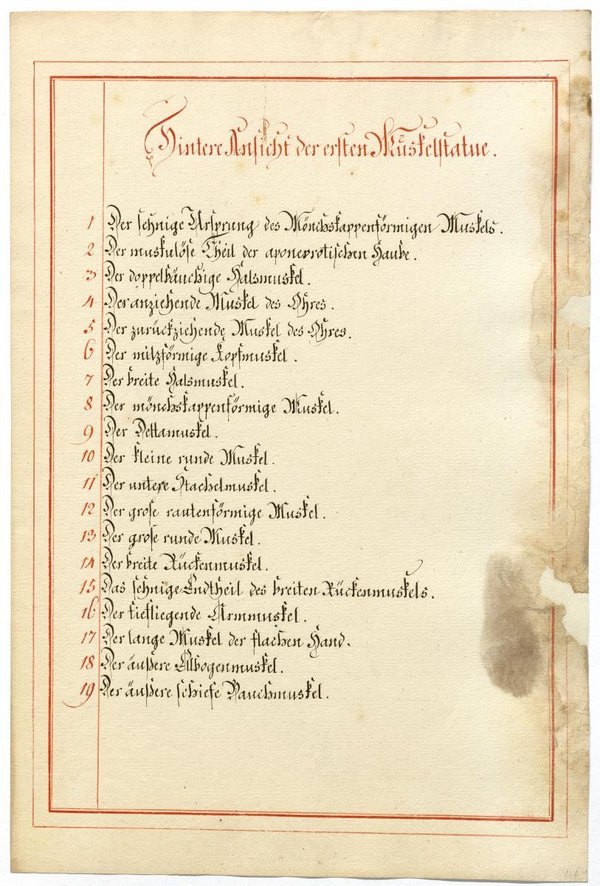 Hintere Ansicht der ersten Muskelstatue.
1 Der sehnige Ursprung des Mönchskappenförmigen Muskels.
2 Der muskulöse Theil der aponevrotischen Haube.
3 Der doppelbäuchige Halsmuskel.
4 Der anziehende Muskel des Ohres.
5 Der zurückziehende Muskel des Ohres.
6 Der milzförmige Kopfmuskel.
7 Der breite Halsmuskel.
8 Der mönchskappenförmige Muskel.
9 Der Deltamuskel.
10 Der kleine runde Muskel.
11 Der untere Stachelmuskel.
12 Der grose rautenförmige Muskel.
13 Der grose runde Muskel.
14 Der breite Rückenmuskel.
15 Das sehnige Endtheil des breiten Rückenmuskels.
16 Der tiefliegende Armmuskel.
17 Der lange Muskel der flachen Hand.
18 Der äußere Elbogenmuskel.
19 Der äußere schiefe Bauchmuskel.